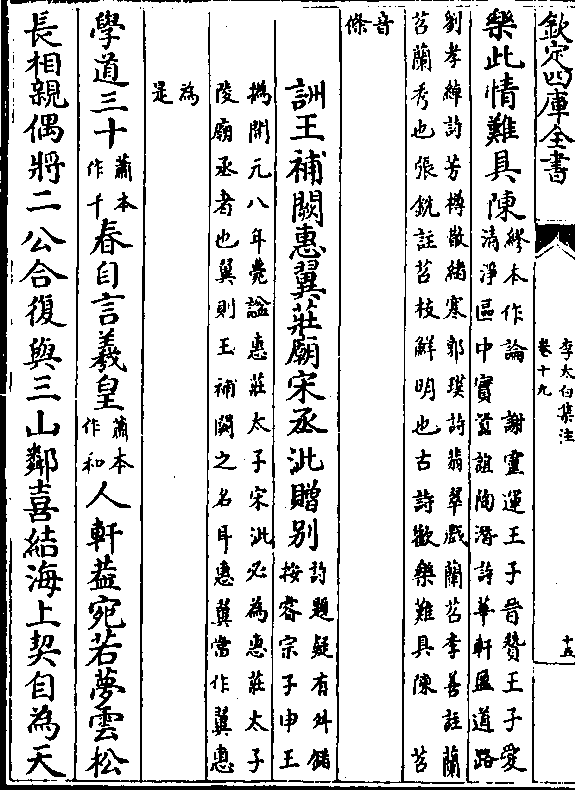 欽定四庫全書
李太白集注
卷十九
十五
樂此情難具陳
繆本作論 謝靈運王子晉贊王子愛
清淨區中實嚻諠陶潛詩華軒盈道路
劉孝綽詩芳樽散緒寒郭璞詩翡翠戲蘭苕李善註蘭
苕蘭秀也張銑註苕枝鮮明也古詩歡樂難具陳 苕
音
條
詶王補闕惠翼莊廟宋丞泚贈别
詩題疑有舛錯
按睿宗子申王
撝開元八年薨諡惠莊太子宋泚必為惠莊太子
陵廟丞者也翼則王補闕之名耳惠翼當作翼惠
為
是
學道三十
蕭本
作千
春自言羲皇
蕭本
作和
人軒葢宛若夢雲松
長相親偶將二公合復與三山鄰喜結海上契自為天